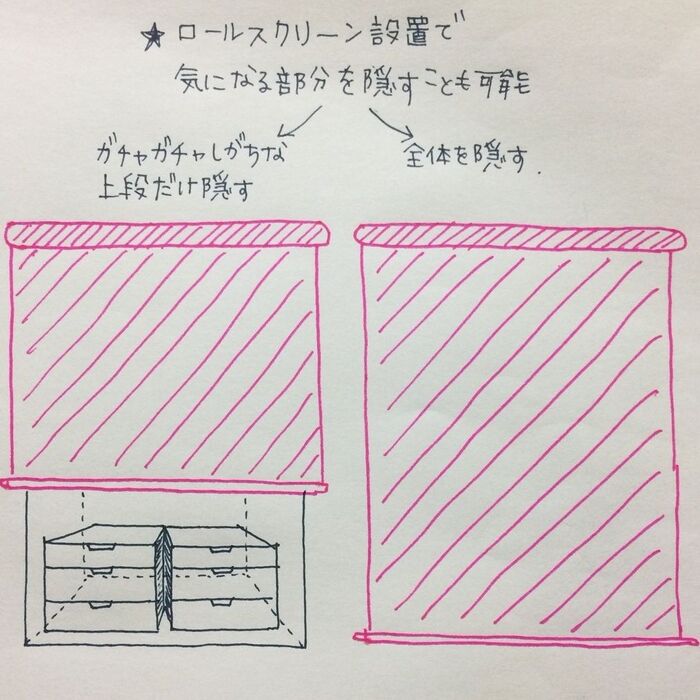 ★ロールスクリーン設置で
気になる部分を隠すことも可能
ガチャガチャしがちな
上段だけ隠す
全体を隠す.